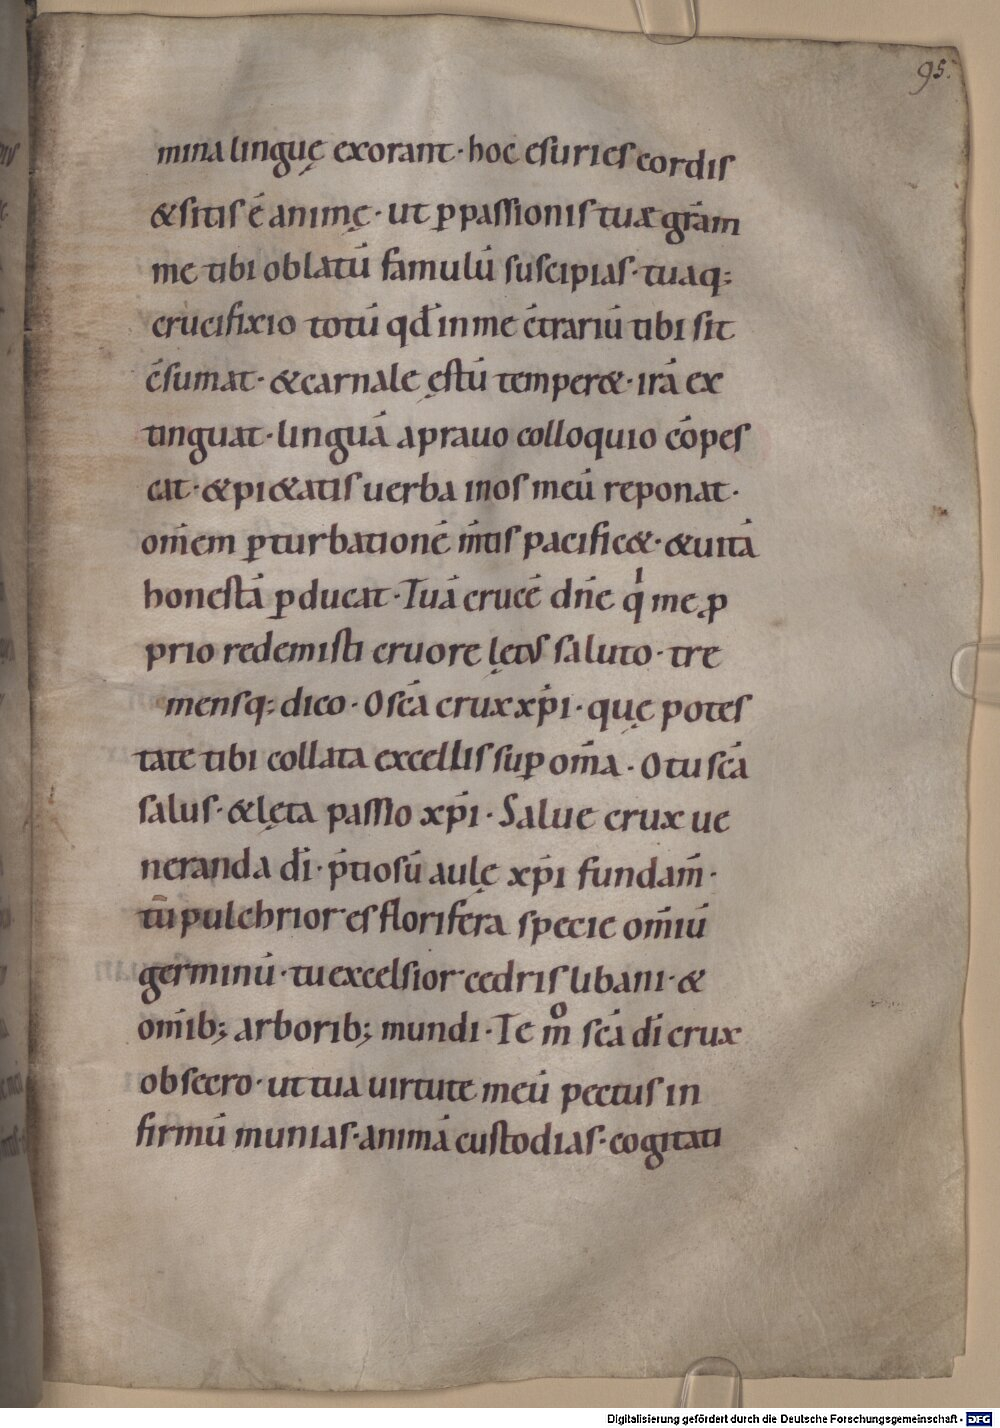 95.
mina linguę exorant · hoc esuries cordis
& sitis ē animę · ut ꝑ passionis tuæ gr̄am
me tibi oblatū famulū suscipias · tuaq;
crucifixio totū qd̄ in me c̄trariū tibi sit
c̄sumat · & carnale ęstū temper& · irā ex
tinguat · linguā a prauo colloquio cōpes
cat · & pi&atis uerba in os meū reponat ·
om̄em ꝑturbationē m̄tis pacific& · & uitā
honestā ꝑducat · Tuā crucē dn̄e q̍ me ꝓ
prio redemisti cruore lętus saluto · tre
mensq; dico · O sc̄a crux xp̄i · quę potes
tate tibi collata excellis suꝑ om̄a · O tu sc̄a
salus · & lęta passio xp̄i · Salue crux ue
neranda dī · p̄tiosū aulę xp̄i fundam̄ ·
tū pulchrior es florifera specie om̄iū
germinū · tu excelsior cedris libani · &
om̄ib; arborib; mundi · Te mͦ sc̄a dī crux
obsecro · ut tua uirtute meū pectus in
firmū munias · animā custodias · cogitati
Digitalisierung gefördert durch die Deutsche Forschungsgemeinschaft - DFG